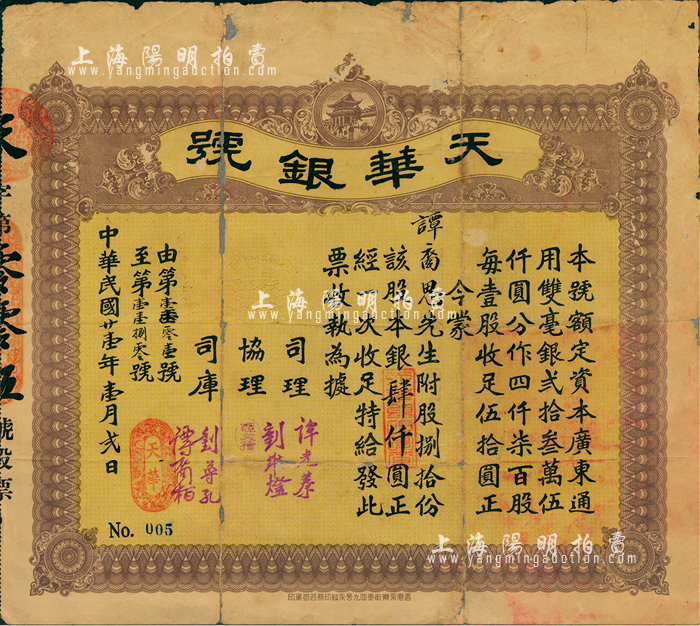 上海陽明拍賣
www.yangmingauction.com
天華銀號
本號額定資本廣東通
用雙毫銀弍拾叁萬伍
仟圓分作四仟柒百股
每壹股收足伍拾圓正
今蒙
譚裔思先生附股捌拾份
該股本銀肆仟圓正
經一次收足特給發此
票收執為據
司理
協理
司庫
由第壹零壹號
至第壹壹捌零號
中華民國廿壹年壹月弍日
天華
No. 005
字第零零伍號股票
上海陽明拍賣
www.yangmingauction.com
上海陽明拍賣
www.yangmingauction.com